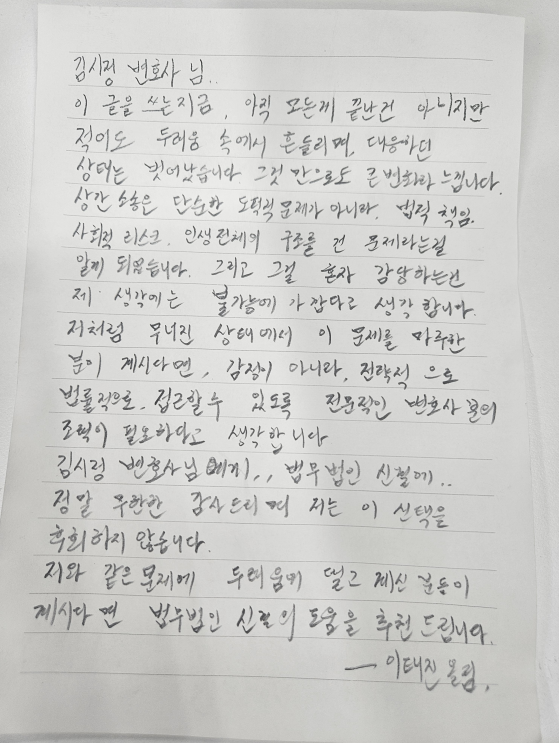 김시정 변호사 님..
이 글을 쓰는지금, 아직 모든게 끝난건 아니지만
적어도 두려움 속에서 흔들리며, 대응하던
상태는 벗어났습니다. 그것 만으로도 큰변화라 느낍니다.
상간 소송은 단순한 도덕적 문제가 아니라. 법적 책임.
사회적 리스크. 인생전체의 구조를 건 문제라는걸
알게 되었습니다. 그리고 그걸 혼자 감당하는건
제 생각에는 불가능에 가깝다고 생각 합니다.
저처럼 무너진 상태에서 이 문제를 마주한
분이 계시다면, 감정이 아니라, 전략적 으로
법률적으로. 접근할수 있도록 전문적인 변호사 분의
조력이 필요하다고 생각합니다
김시정 변호사님 에게,, 법무법인 신헐에..
정말 무한한 감사드리며 저는 이 선택을
후회하지 않습니다.
저와 같은문제에 두려움에 떨고 계신 분들이
계시다면 법무법인 신헐의 도움을 추천 드립니다.
— 이태진 올림.